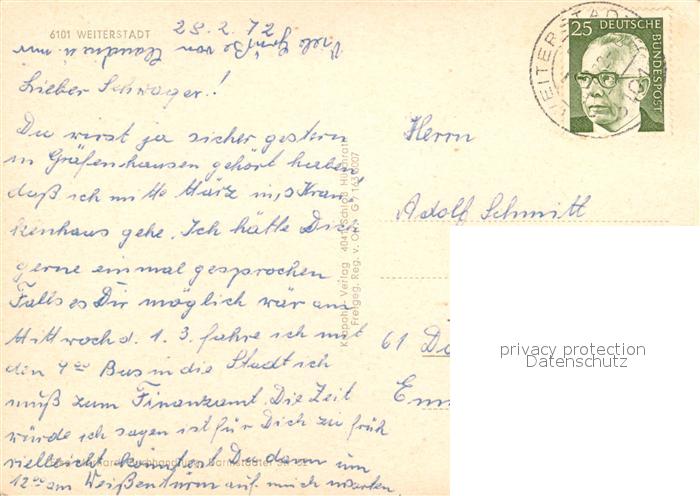 6101 WEITERSTADT
28.2.72
Viele Grüße von Claudia u. mir
Lieber Schwager!
Du wirst ja sicher gestern
in Gräfenhausen gehört haben
daß ich mitte März in,s Kran
kenhaus gehe. Ich hätte Dich
gerne einmal gesprochen
Falls es Dir möglich wär am
Mittwoch d. 1. 3. fahre ich mit
den 9 Bus in die Stadt ich
muß zum Finanzamt. Die Zeit
würde ich sagen ist für Dich zu früh
vielleicht Du dann um
12 am Weißenturm auf mich warten.
Krapohl-Verlag 404 Schloß Hülchrath
Freigeg. Reg. v. G 7
25
DEUTSCHE
BUNDESPOST
Herrn
Adolf Schmitt
61 Da
privacy protection
Datenschutz